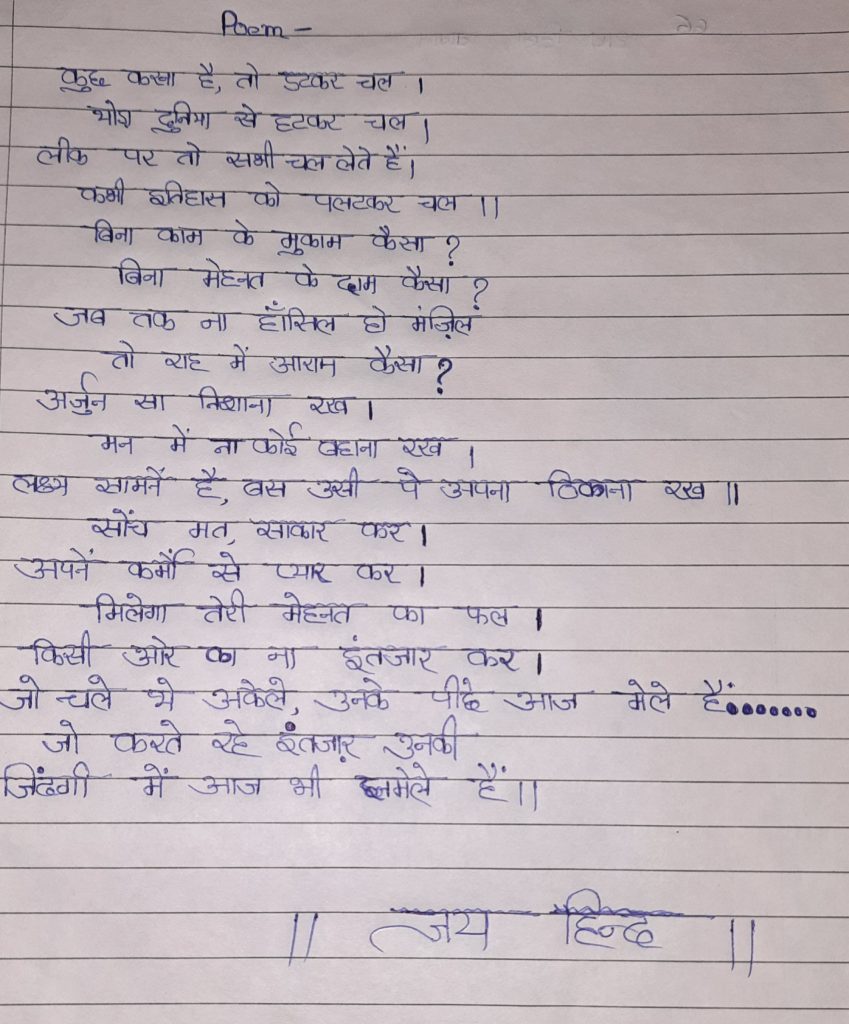 Poem -
कुछ करना है, तो डटकर चल ।
थोड़ा दुनिया से हटकर चल ।
लीक पर तो सभी चल लेते हैं।
कभी इतिहास को पलटकर चल ।।
बिना काम के मुकाम कैसा ?
बिना मेहनत के दाम कैसा ?
जब तक ना हाँसिल हो मंज़िल
तो राह में आराम कैसा ?
अर्जुन सा निशाना रख ।
मन में ना कोई बहाना रख ।
लक्ष्य सामनें है, बस उसी पे अपना ठिकाना रख ॥
सोंच मत, साकार कर ।
अपनें कर्मों से प्यार कर ।
मिलेगा तेरी मेहनत का फल ।
किसी ओर का ना इंतजार कर ।
जो चले थे अकेले, उनके पीछे आज मेले हैं........
जो करते रहे इंतजार उनकी
जिंदगी में आज भी झमेले हैं।।
|| जय हिन्द ||